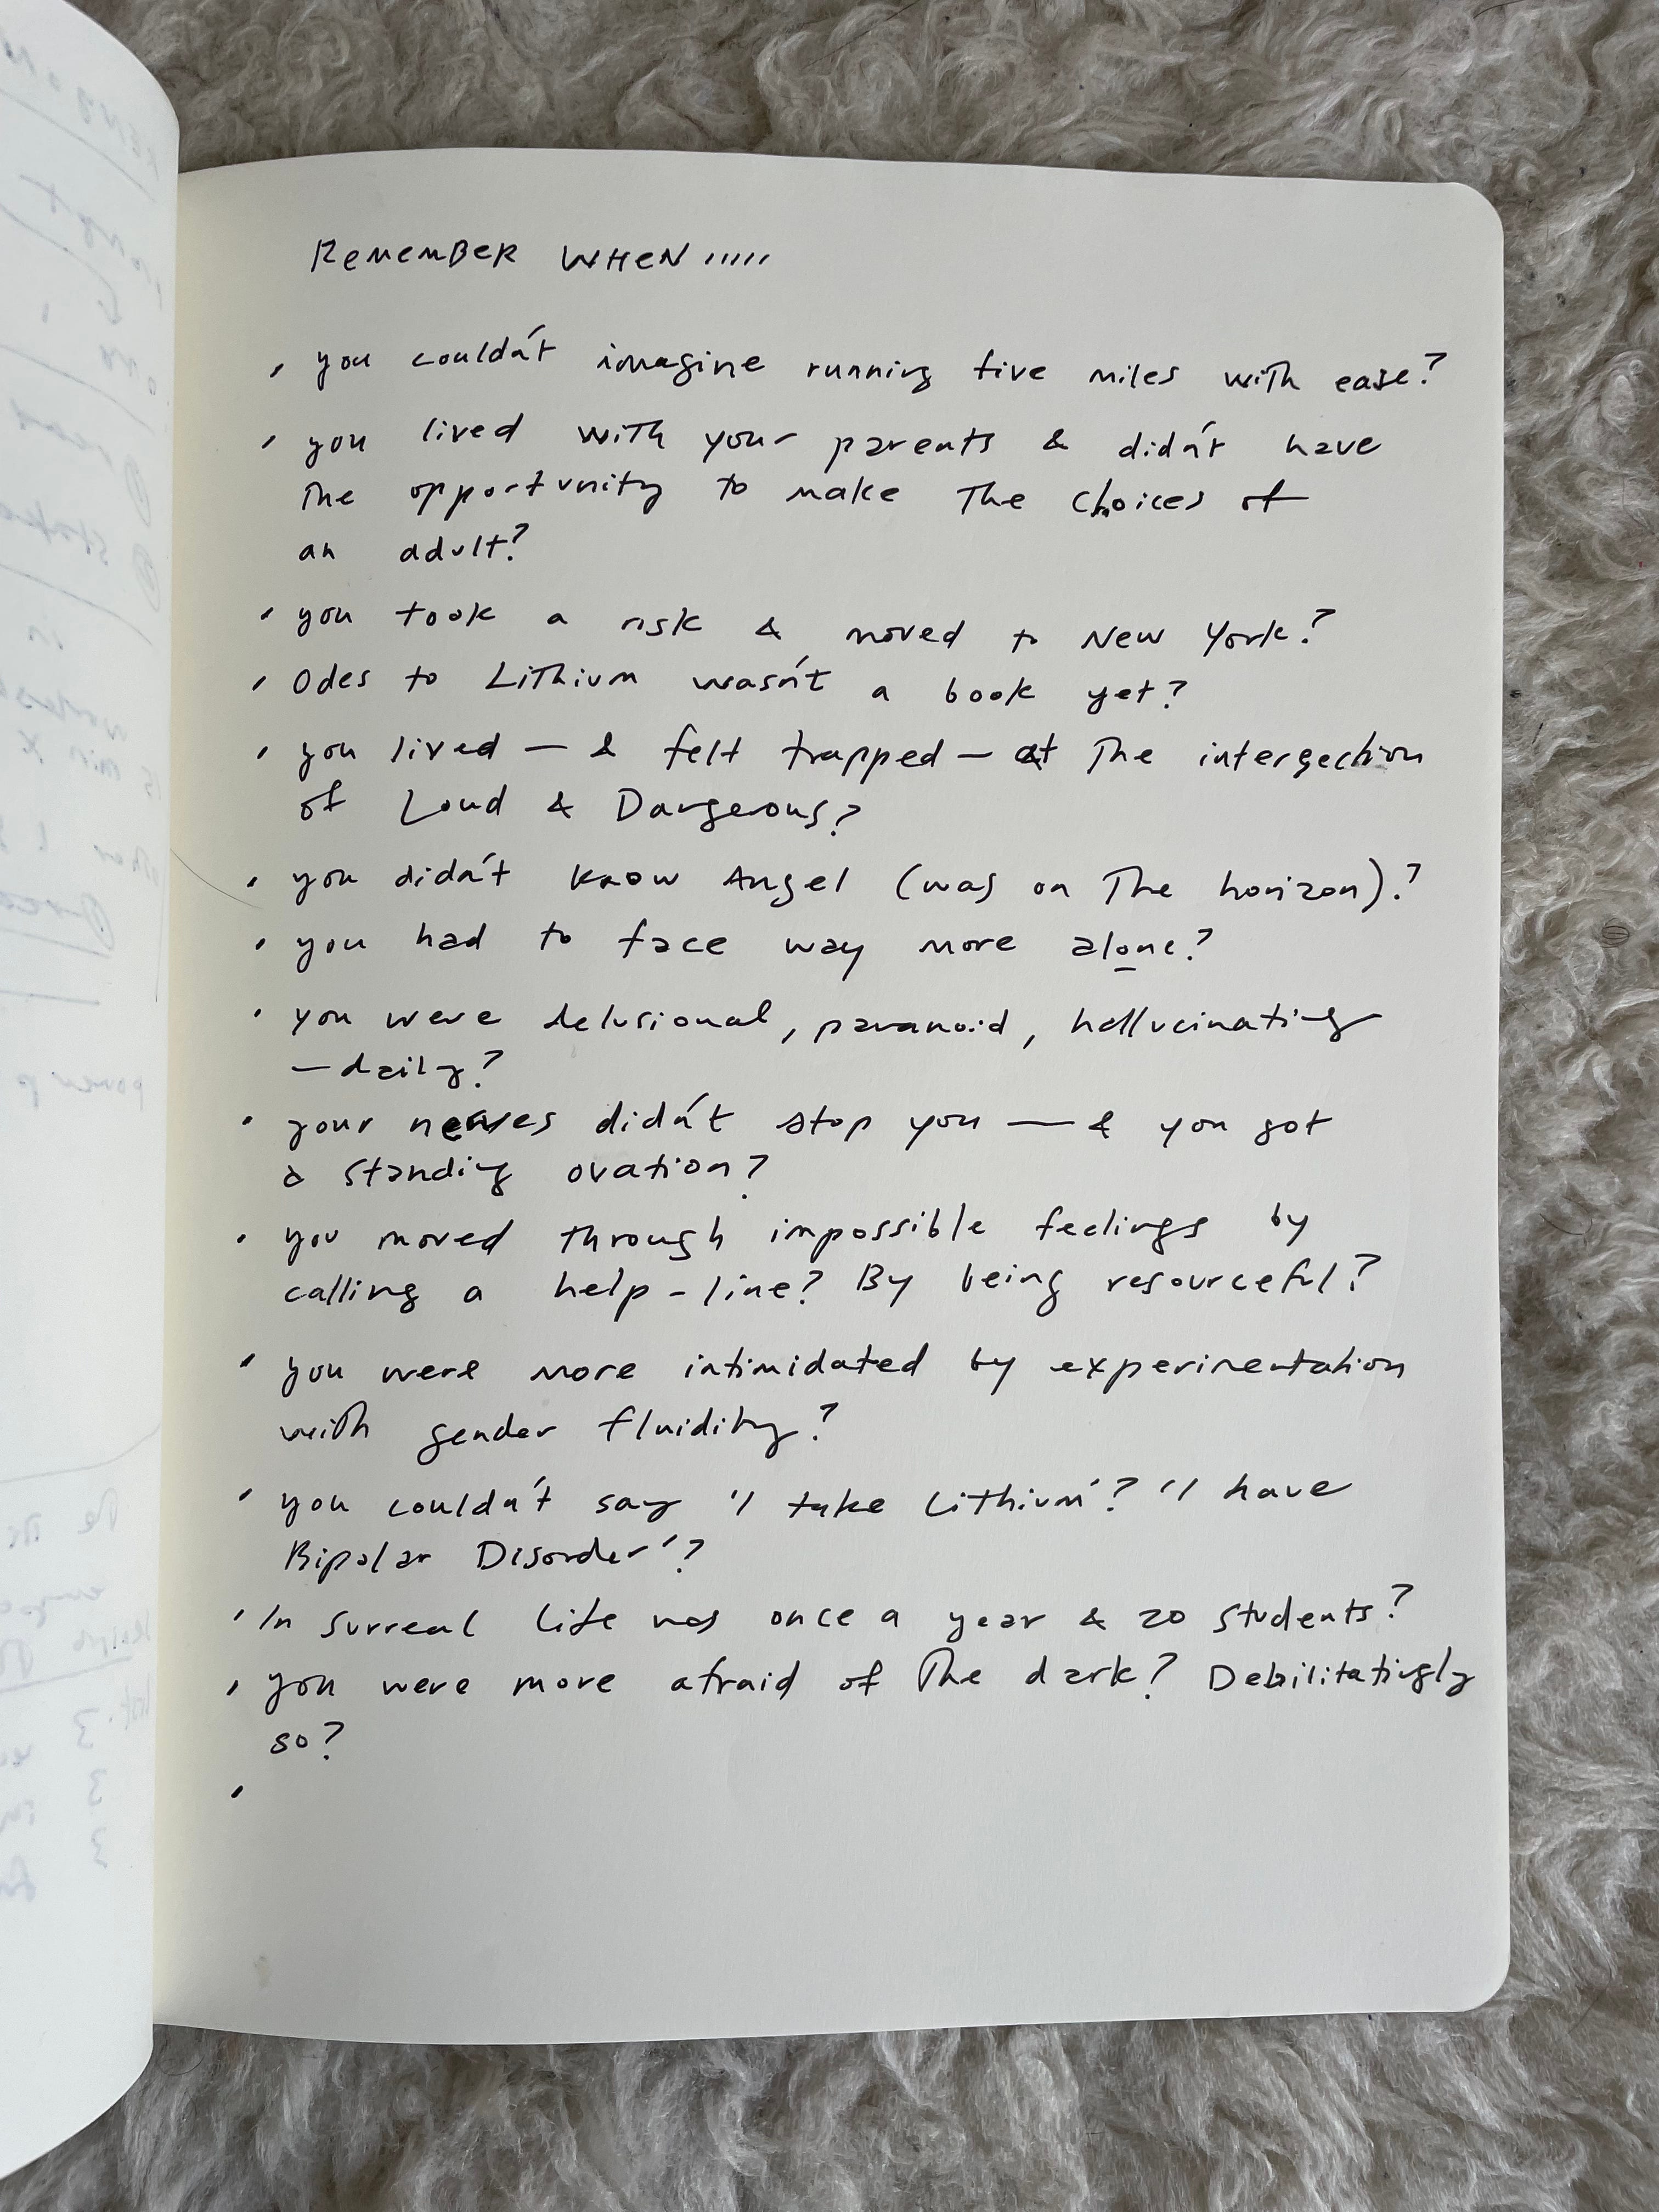 REMEMBER WHEN.....
• you couldn't imagine running five miles with ease?
• you lived with your parents & didn't have
the opportunity to make the choices of
an adult?
• you took a risk & moved to New York?
• Odes to Lithium wasn't a book yet?
• you lived — & felt trapped — at the intersection
of Loud & Dangerous?
• you didn't know Angel (was on the horizon)?
• you had to face way more alone?
• you were delusional, paranoid, hallucinating
— daily?
• your nerves didn't stop you — & you got
a standing ovation?
• you moved through impossible feelings by
calling a help-line? By being resourceful?
• you were more intimidated by experimentation
with gender fluidity?
• you couldn't say 'I take Lithium'? 'I have
Bipolar Disorder'?
• In Surreal Life was once a year & 20 students?
• you were more afraid of the dark? Debilitatingly
so?
•